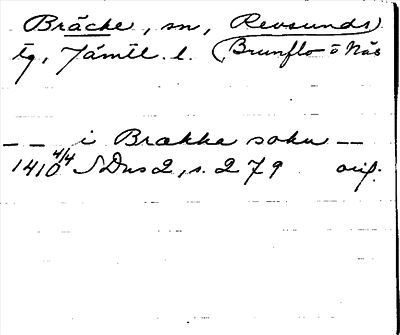 Bräcke, sn, Revsunds
tg, Jämtl. l. (Brunflo o Näs)
– – i Brækka sokn – –
1410 4/4 SDns 2, s. 279 orig.